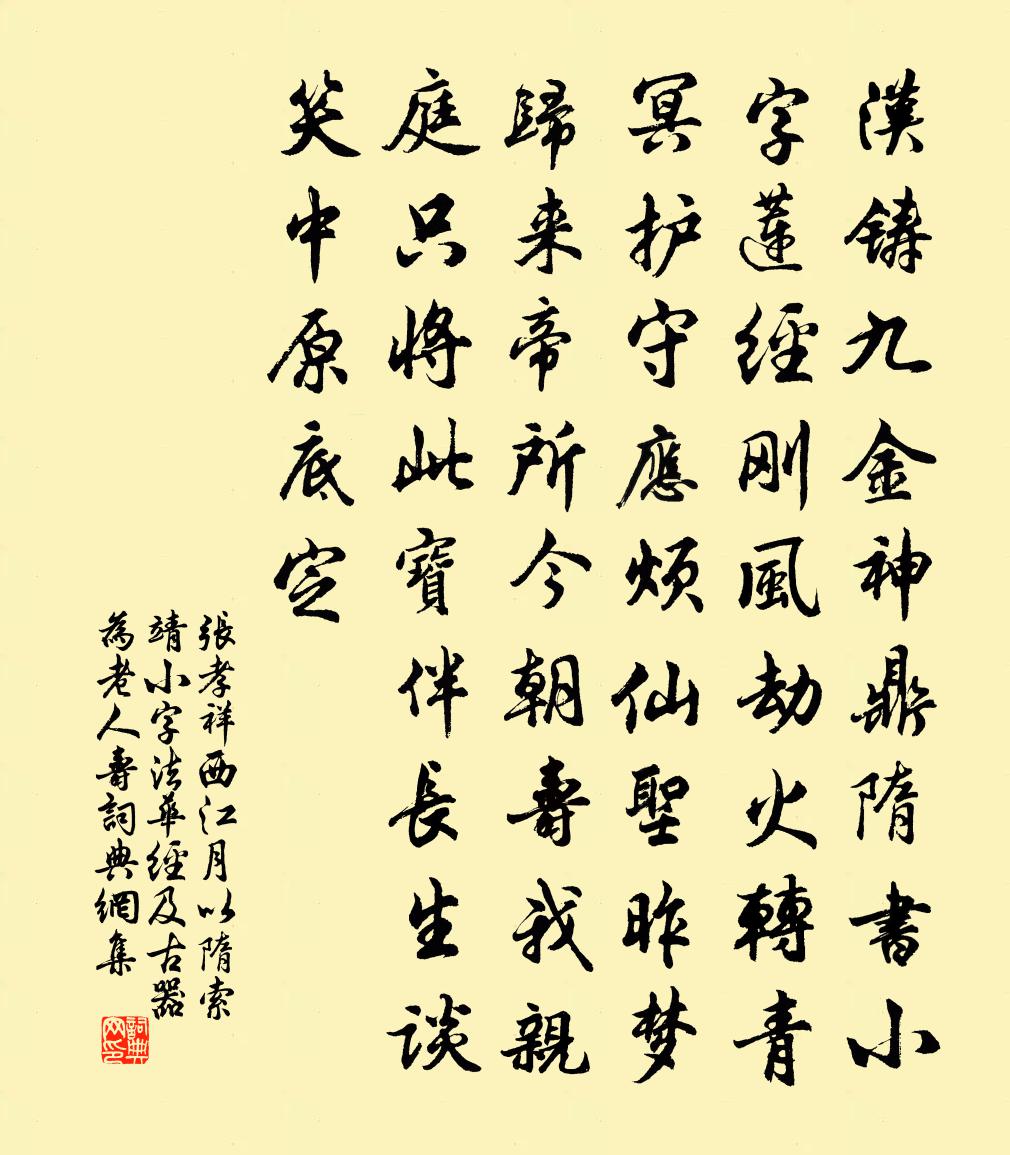 漢鑄九金神鼎隋書小
字蓮經刚風劫火轉青
冥护守應煩仙聖昨梦
歸来帝所今朝壽我親
庭只將此寶伴長生谈
笑中原底定
張孝祥西江月以隋索
靖小字法華經及古器
為老人壽詞典網集
詞典
网印